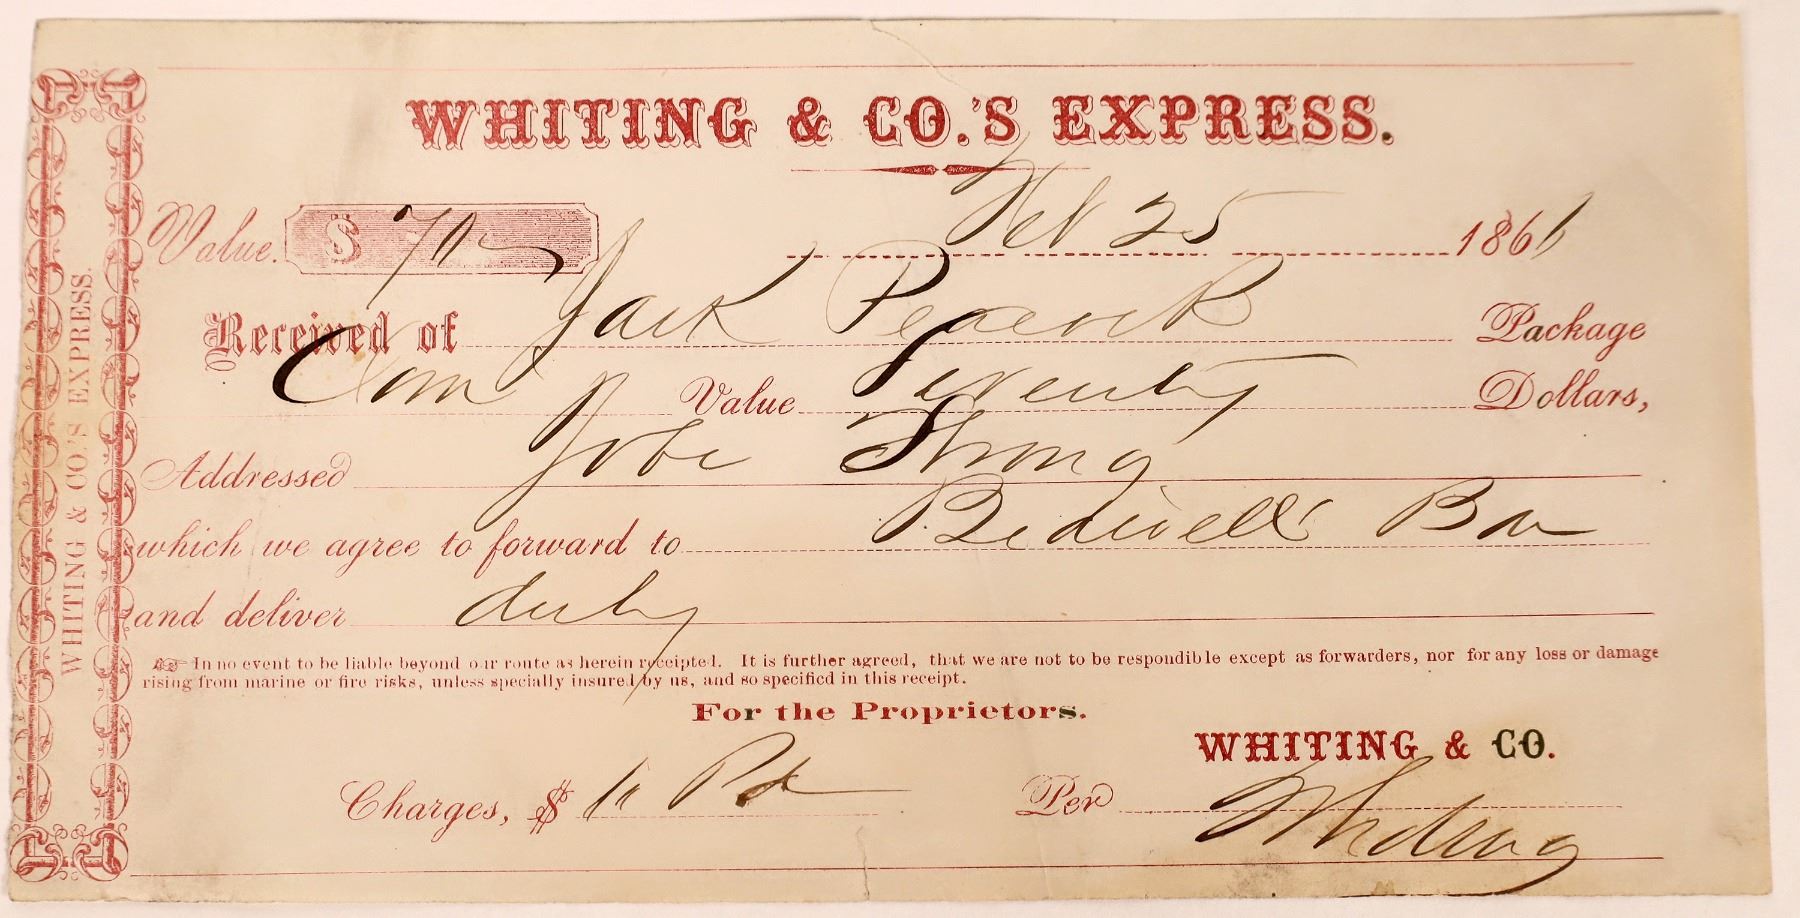 WHITING & CO.'S EXPRESS.
WHITING & CO.'S EXPRESS.
Feb 25 1861
Value. $ 70
Received of Jack Peacock Package
Coin Value Seventy Dollars,
Addressed Jobe Strong
which we agree to forward to Bedwell's Bar
and deliver duly
In no event to be liable beyond our route as herein receipted. It is further agreed, that we are not to be respondible except as forwarders, nor for any loss or damage
rising from marine or fire risks, unless specially insured by us, and so specified in this receipt.
For the Proprietors.
WHITING & CO.
Charges, $ Pd Per